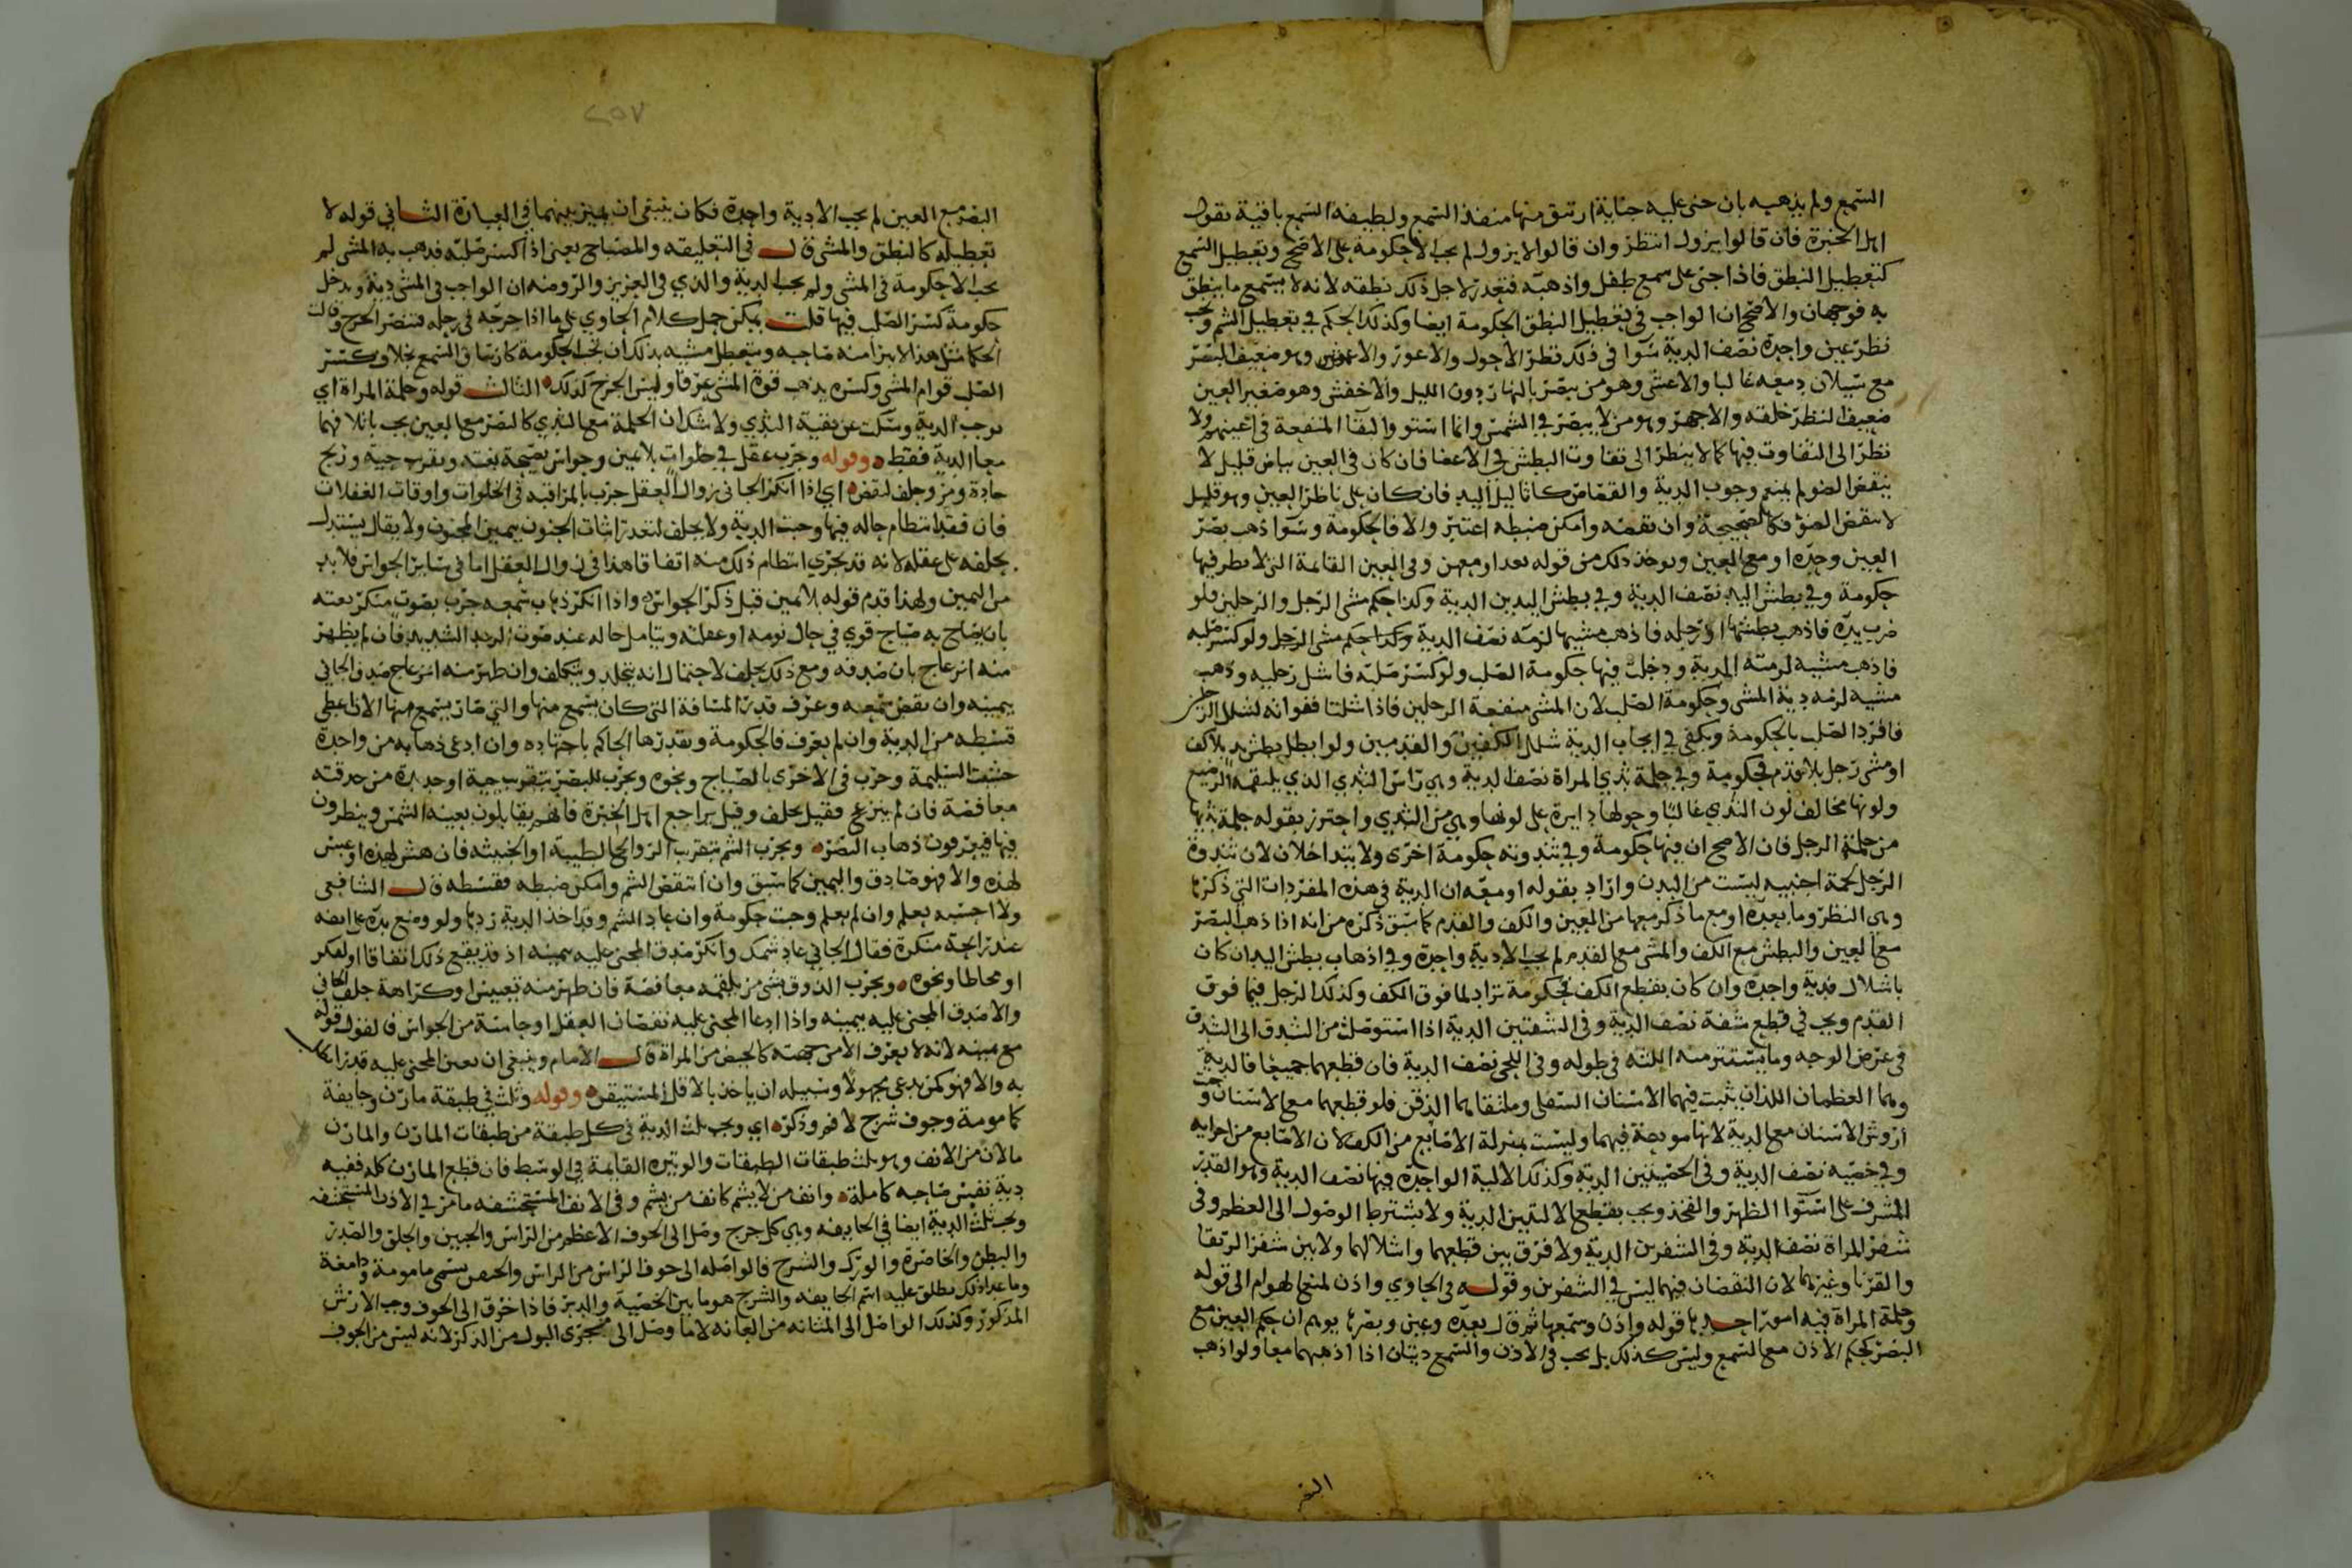 السمع ولم يذهبه بان جنى عليه جناية ارتتق منها منفذ السمع ولطيفة السمع باقية بقول
اهل الخبرة فان قالوا يزول انتظر وان قالوا لا يزول لم يجب الا حكومة على الاصح وتعطيل السمع
كتعطيل النطق فاذا جنى على سمع طفل واذهبه فتعذر لاجل ذلك نطقه لانه لا يسمع ما ينطق
به فوجهان والاصح ان الواجب في تعطيل النطق الحكومة ايضا وكذلك الحكم في تعطيل الشم ويجب
نظر عين واحدة نصف الدية سوا في ذلك نظر الاحول والاعور والاعمش وهو ضعيف البصر
مع سيلان دمعه غالبا والاعشى وهو من يبصر بالنهار دون الليل والاخفش وهو صغير العين
ضعيف النظر خلقه والاجهر وهو من لا يبصر في الشمس وانما استووا لبقا المنفعة في اعينهم ولا
نظر الى التفاوت فيها كما لا ينظر الى تفاوت البطش في الاعضا فان كان في العين بياض قليل لا
ينقص الضو لم يمنع وجوب الدية والقصاص كثاليل اليد فان كان على ناظر العين وهو قليل
لا ينقص الضو فكالصحيحة وان نقصه وامكن ضبطه اعتبر والا فالحكومة وسوا ذهب بصر
العين وحده او مع العين ويوخذ ذلك من قوله بعد او معهن وفي العين القايمة التي لا نظر فيها
حكومة وفي بطش اليد نصف الدية وفي بطش اليدين الدية وكذا حكم مشى الرجل والرجلين فلو
ضرب يده فاذهب بطشها او رجله فاذهب مشيها لزمه نصف الدية وكذا حكم مشى الرجل ولو كسر صلبه
فاذهب مشيه لزمته الدية ودخلت فيها حكومة الصلب ولو كسر صلبه فاشل رجليه وذهب
مشيه لزمه دية المشى وحكومة الصلب لان المشى منفعة الرجلين فاذا شلتا ففواته لشلل الرجلين
فافرد الصلب بالحكومة ويكفى في ايجاب الدية شلل الكفين والقدمين ولو ابطل بطش يد بلا كف
او مشى رجل بلا قدم فحكومة وفي حلمة ثدي المراة نصف الدية وهي راس الثدي الذي يلتقمه الرضيع
ولونها مخالف لون الثدي غالبا وحولها دايرة على لونها وهي من الثدي واحترز بقوله حلمة ثديها
من حلمة الرجل فان الاصح ان فيها حكومة وفي ثندوته حكومة اخرى ولا يتداخلان لان ثندوة
الرجل لحمة اجنبيه ليست من البدن واراد بقوله او معه ان الدية في هذه المفردات التي ذكرها
وهي النظر وما بعده او مع ما ذكر معها من العين والكف والقدم كما سبق ذكره من انه اذا ذهب البصر
مع العين والبطش مع الكف والمشى مع القدم لم يجب الا دية واحدة وفي اذهاب بطش اليد ان كان
باشلال فدية واحدة وان كان بقطع الكف فحكومة تزاد لما فوق الكف وكذلك الرجل فيما فوق
القدم ويجب في قطع شفة نصف الدية وفي الشفتين الدية اذا استوصلت من الشدق الى الشدق
في عرض الوجه وما يستتر منه اللثه في طوله وفي اللحى نصف الدية فان قطعهما جميعا فالدية
وهما العظمان اللذان يثبت فيهما الاسنان السفلى وملتقاهما الذقن فلو قطعهما مع الاسنان وجبت
اروش الاسنان مع الدية لانها مودعة فيهما وليست بمنزلة الاصابع من الكف لان الاصابع من اجزايه
وفي خصيه نصف الدية وفي الخصيتين الدية وكذلك الالية الواحدة فيها نصف الدية وهو القدر
المشرف على استوا الظهر والفخذ ويجب بقطع الاليتين الدية ولا يشترط الوصول الى العظم وفي
شفر المراة نصف الدية وفي الشفرين الدية ولا فرق بين قطعهما واشلالهما ولا بين شفر الرتقا
والقرنا وغيرهما لان النقصان فيهما ليس في الشفرين وقوله في الحاوي واذن لمنعها لهوام الى قوله
وحلمة المراة فيه امور احدها قوله واذن وسمعها ثم قال بعده وعين وبصرها يوهم ان حكم العين مع
البصر كحكم الاذن مع السمع وليس كذلك بل يجب في الاذن والسمع ديتان اذا اذهبهما معا ولو اذهب
البصر
٢٥٧
البصر مع العين لم يجب الا دية واحدة فكان ينبغى ان يميز بينهما في العبارة الثاني قوله لا
تعطيله كالنطق والمشى قال في التعليقه والمصباح يعنى اذا كسر صلبه فذهب به المشى لم
يجب الا حكومة في المشى ولم يجب الدية والذي في العزيز والروضه ان الواجب في المشى دية ويدخل
حكومة كسر الصلب فيها قلت يمكن حمل كلام الحاوي على ما اذا جرحه في رجله
الصلب قوام المشى وكسره يذهب قوة المشى عرفا وليس الجرح كذلك الثالث قوله وحلمة المراة اي
يوجب الدية وسكت عن بقية الثدي ولا شك ان الحلمة مع الثدي كالبصر مع العين يجب باتلافهما
معا الدية فقط وقوله وجرب عقل في خلوات بلا يمين وحواس بصيحة بغتة وتقريب حية وريح
حادة ومر وحلف لنقص اي اذا انكر الجاني زوال العقل جرب بالمراقبه في الخلوات واوقات الغفلات
فان فقد انتظام حاله فيها وجبت الدية ولا يحلف لتعذر اثبات الجنون بيمين المجنون ولا يقال يستدل
بحلفه على عقله لانه قد يجري انتظام ذلك منه اتفاقا هذا في زوال العقل اما في ساير الحواس فلا بد
من اليمين ولهذا قدم قوله بلا يمين قبل ذكر الحواس واذا انكر ذهاب سمعه جرب بصوت منكر بغته
بان يصاح به صياح قوي في حال نومه او غفلته ويتامل حاله عند صوت الرعد الشديد فان لم يظهر
منه انزعاج بان صدقه ومع ذلك يحلف لاحتمال انه يتجلد ويتكلف وان ظهر منه انزعاج صدق الجاني
بيمينه وان نقص سمعه وعرف قدر المسافة التي كان يسمع منها والتي صار يسمع منها الان اعطى
قسطه من الدية وان لم يعرف فالحكومة وتقديرها الحاكم باجتهاده وان ادعى ذهابه من واحدة
حشيت السليمة وجرب في الاخرى بالصياح ونحوه ويجرب للبصر بتقريب حية او حديدة من حدقته
معافصة فان لم ينزعج فقيل يحلف وقيل يراجع اهل الخبرة فانهم يقابلون بعينه الشمس وينظرون
فيها فيعرفون ذهاب البصر ويجرب الشم بتقريب الروايح الطيبة او الخبيثه فان هش لهذه او عبس
لهذه والا فهو صادق واليمين كما سبق وان انتقص الشم وامكن ضبطه فقسطه قال الشافعى
ولا احسبه يعلم وان لم يعلم وجبت حكومة وان عاد الشم وقد اخذ الدية ردها ولو وضع يده على انفه
عند رايحة منكرة فقال الجاني عاد شمك وانكر صدق المجنى عليه بيمينه اذ قد يقع ذلك اتفاقا او لفكر
او مخاط او نحوه ويجرب الذوق بشى مر يلقمه معافصة فان ظهر منه تعبيس او كراهة حلف الجاني
والا صدق المجنى عليه بيمينه واذا ادعا المجنى عليه نقصان العقل او حاسة من الحواس فالقول قوله
مع يمينه لانه لا يعرف الا من جهته كالحيض من المراة قال الامام وينبغى ان يعين المجنى عليه قدرا
به والا فهو كمن يدعى مجهولا وسبيله ان ياخذ بالاقل المستيقن وقوله وثلث في طبقة مارن وجايفة
كمامومة وجوف شرج لا فم وذكر اي ويجب ثلث الدية في كل طبقة من طبقات المارن والمارن
ما لان من الانف وهو ثلث طبقات الطبقات والوتيرة القايمة في الوسط فان قطع المارن كله ففيه
دية نفيس صاحبه كاملة وانف من لا يشم كانف من يشم وفي الانف المستحشفه ما مر في الاذن المستحشفه
ويجب ثلث الدية ايضا في الجايفه وهي كل جرح وصل الى الجوف الاعظم من الراس والجبين والحلق والصدر
والبطن والخاصرة والورك والشرج فالواصله الى جوف الراس من الراس والجبين يسمى مامومة ودامغة
وما عدا ذلك يطلق عليه اسم الجايفه والشرج هو ما بين الخصية والدبر فاذا خرق الى الجوف وجب الارش
المذكور وكذلك الواصل الى المثانه من العانه لا ما وصل الى مجرى البول من الذكر لانه ليس من الجوف